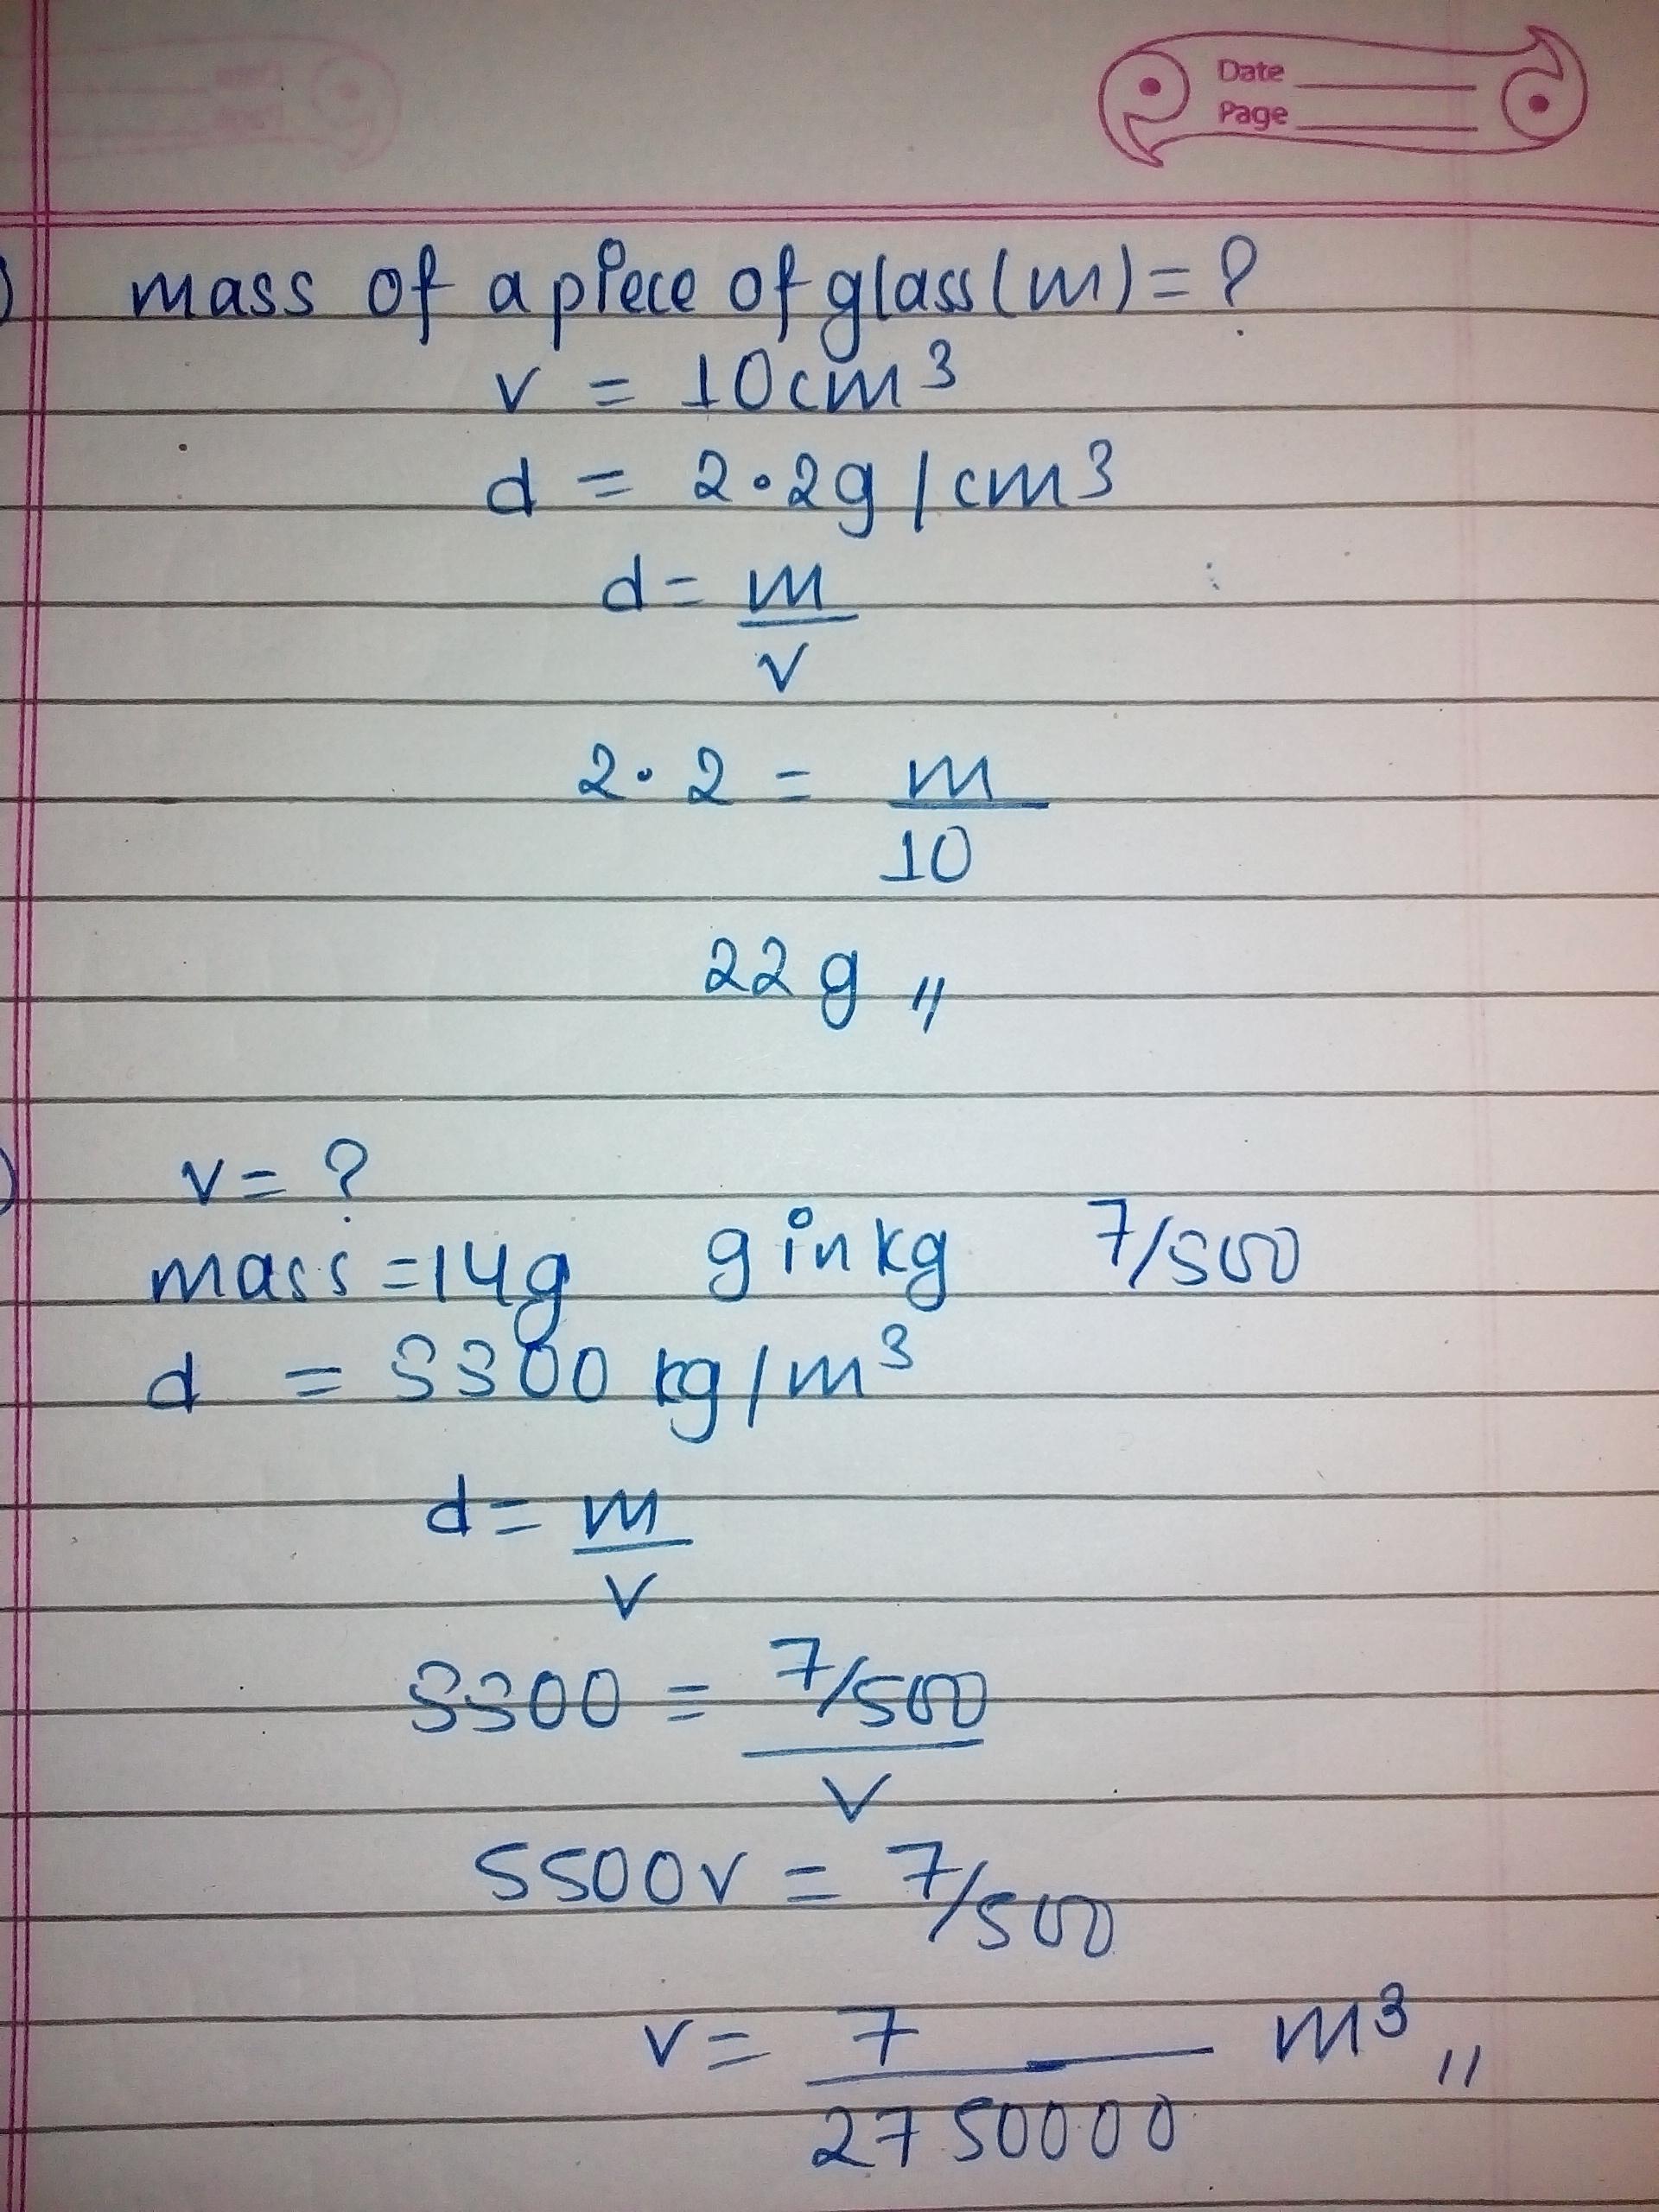 Date
Page
) mass of a piece of glass (m) = ?
v = 10cm³
d = 2.2g/cm³
d = m
v
2.2 = m
10
22g,,
) v = ?
mass = 14g g in kg 7/500
d = 5500 kg/m³
d = m
v
5500 = 7/500
v
5500v = 7/500
v = 7 m³,,
2750000